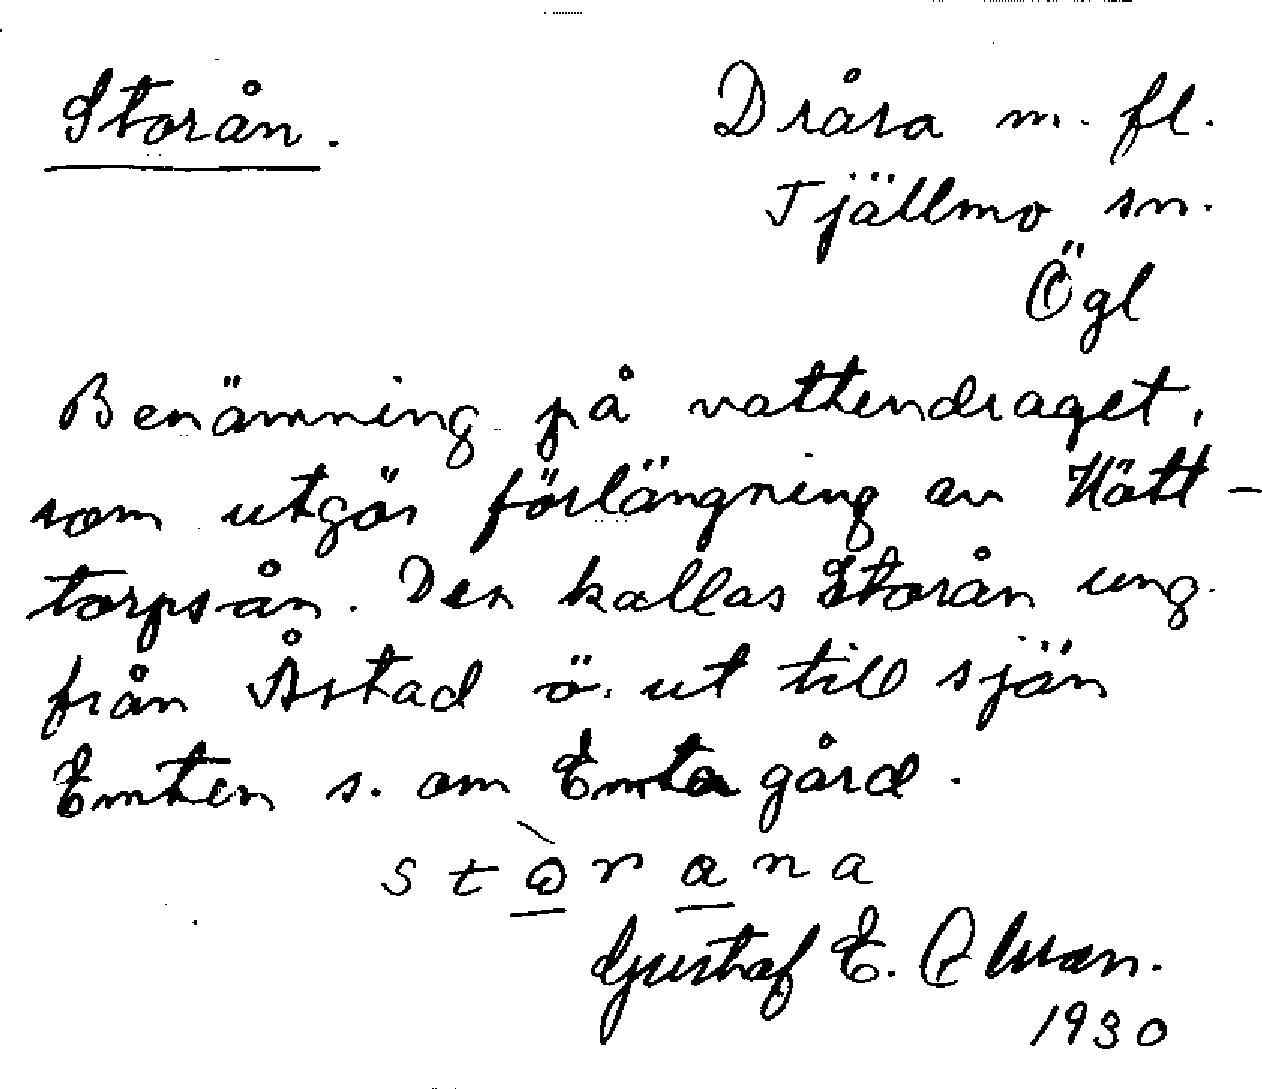 Storån.
Dråra m. fl.
Tjällmo sn.
Ögl
Benämning på vattendraget,
som utgör förlängning av Hätt-
torpsån. Den kallas Storån ung.
från Åstad ö. ut till sjön
Emten s. om Emta gård.
stòrana
Gustaf E.
1930